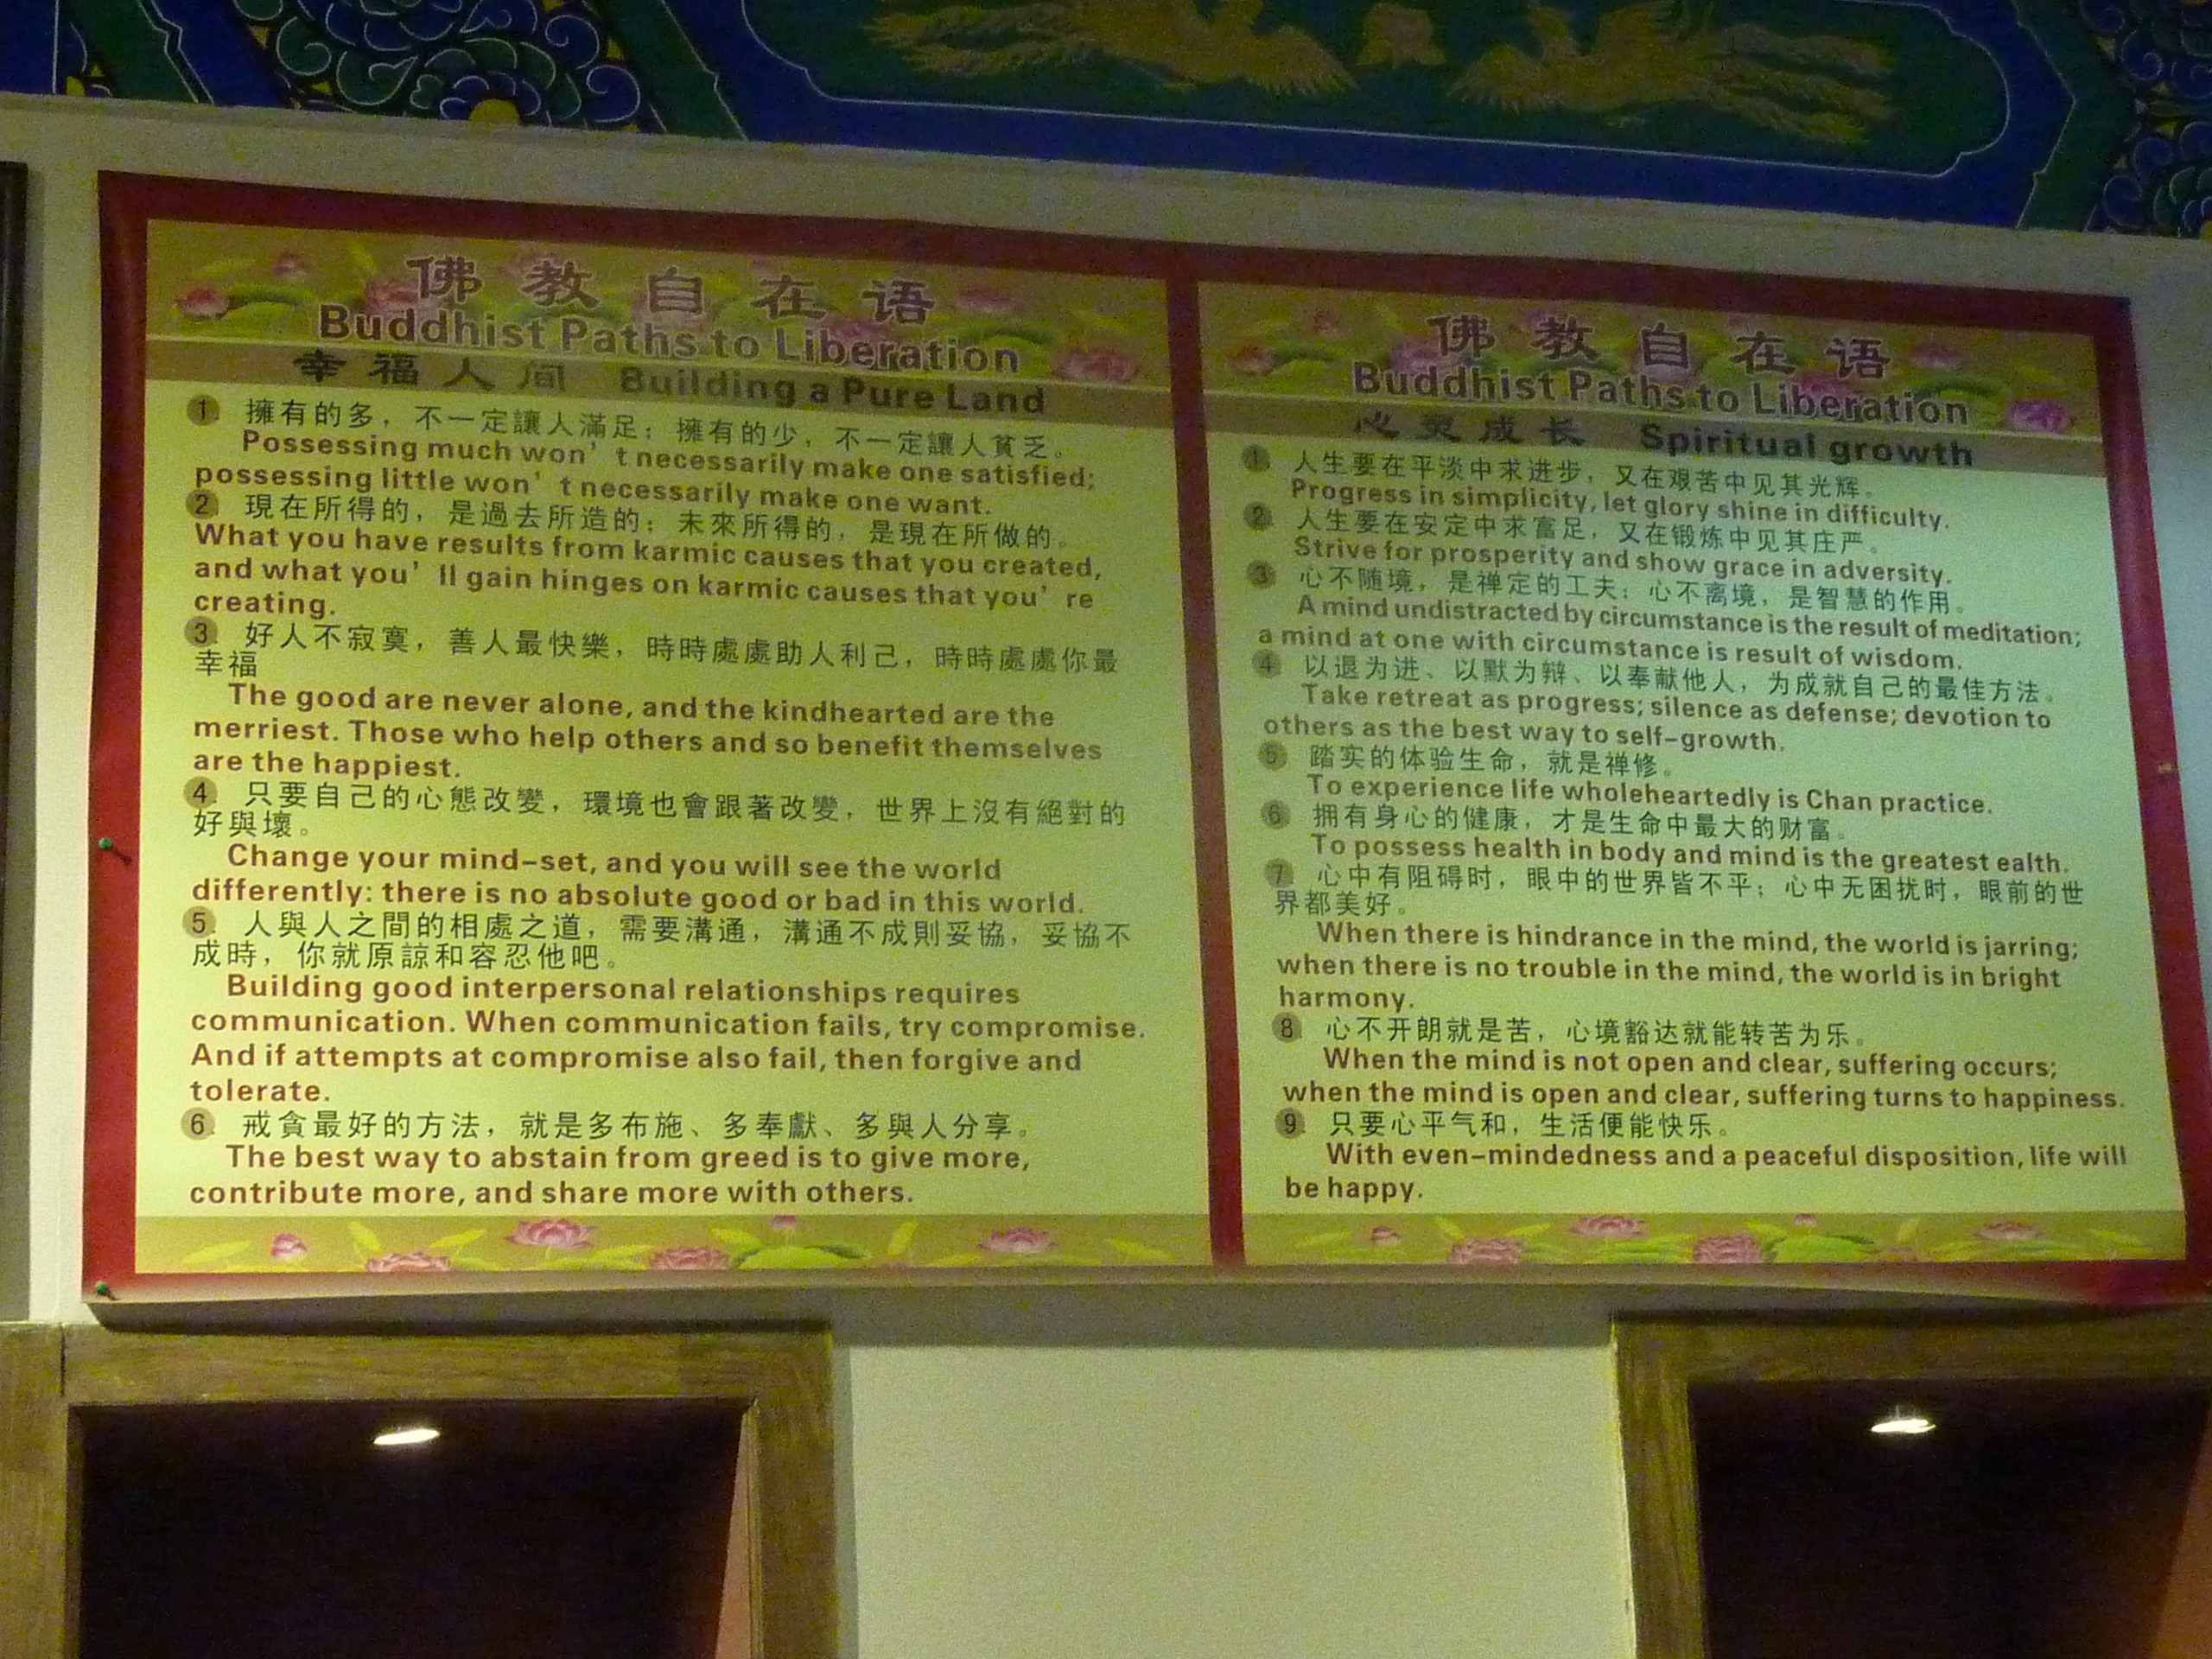 佛教自在语
Buddhist Paths to Liberation
幸福人间 Building a Pure Land
1. 擁有的多，不一定讓人滿足；擁有的少，不一定讓人貧乏。
Possessing much won't necessarily make one satisfied;
possessing little won't necessarily make one want.
2. 現在所得的，是過去所造的；未來所得的，是現在所做的。
What you have results from karmic causes that you created,
and what you'll gain hinges on karmic causes that you're
creating.
3. 好人不寂寞，善人最快樂，時時處處助人利己，時時處處你最
幸福
The good are never alone, and the kindhearted are the
merriest. Those who help others and so benefit themselves
are the happiest.
4. 只要自己的心態改變，環境也會跟著改變，世界上沒有絕對的
好與壞。
Change your mind-set, and you will see the world
differently: there is no absolute good or bad in this world.
5. 人與人之間的相處之道，需要溝通，溝通不成則妥協，妥協不
成時，你就原諒和容忍他吧。
Building good interpersonal relationships requires
communication. When communication fails, try compromise.
And if attempts at compromise also fail, then forgive and
tolerate.
6. 戒貪最好的方法，就是多布施、多奉獻、多與人分享。
The best way to abstain from greed is to give more,
contribute more, and share more with others.
佛教自在语
Buddhist Paths to Liberation
心灵成长 Spiritual growth
1. 人生要在平淡中求进步，又在艰苦中见其光辉。
Progress in simplicity, let glory shine in difficulty.
2. 人生要在安定中求富足，又在锻炼中见其庄严。
Strive for prosperity and show grace in adversity.
3. 心不随境，是禅定的工夫；心不离境，是智慧的作用。
A mind undistracted by circumstance is the result of meditation;
a mind at one with circumstance is result of wisdom.
4. 以退为进、以默为辩、以奉献他人，为成就自己的最佳方法。
Take retreat as progress; silence as defense; devotion to
others as the best way to self-growth.
5. 踏实的体验生命，就是禅修。
To experience life wholeheartedly is Chan practice.
6. 拥有身心的健康，才是生命中最大的财富。
To possess health in body and mind is the greatest ealth.
7. 心中有阻碍时，眼中的世界皆不平；心中无困扰时，眼前的世
界都美好。
When there is hindrance in the mind, the world is jarring;
when there is no trouble in the mind, the world is in bright
harmony.
8. 心不开朗就是苦，心境豁达就能转苦为乐。
When the mind is not open and clear, suffering occurs;
when the mind is open and clear, suffering turns to happiness.
9. 只要心平气和，生活便能快乐。
With even-mindedness and a peaceful disposition, life will
be happy.